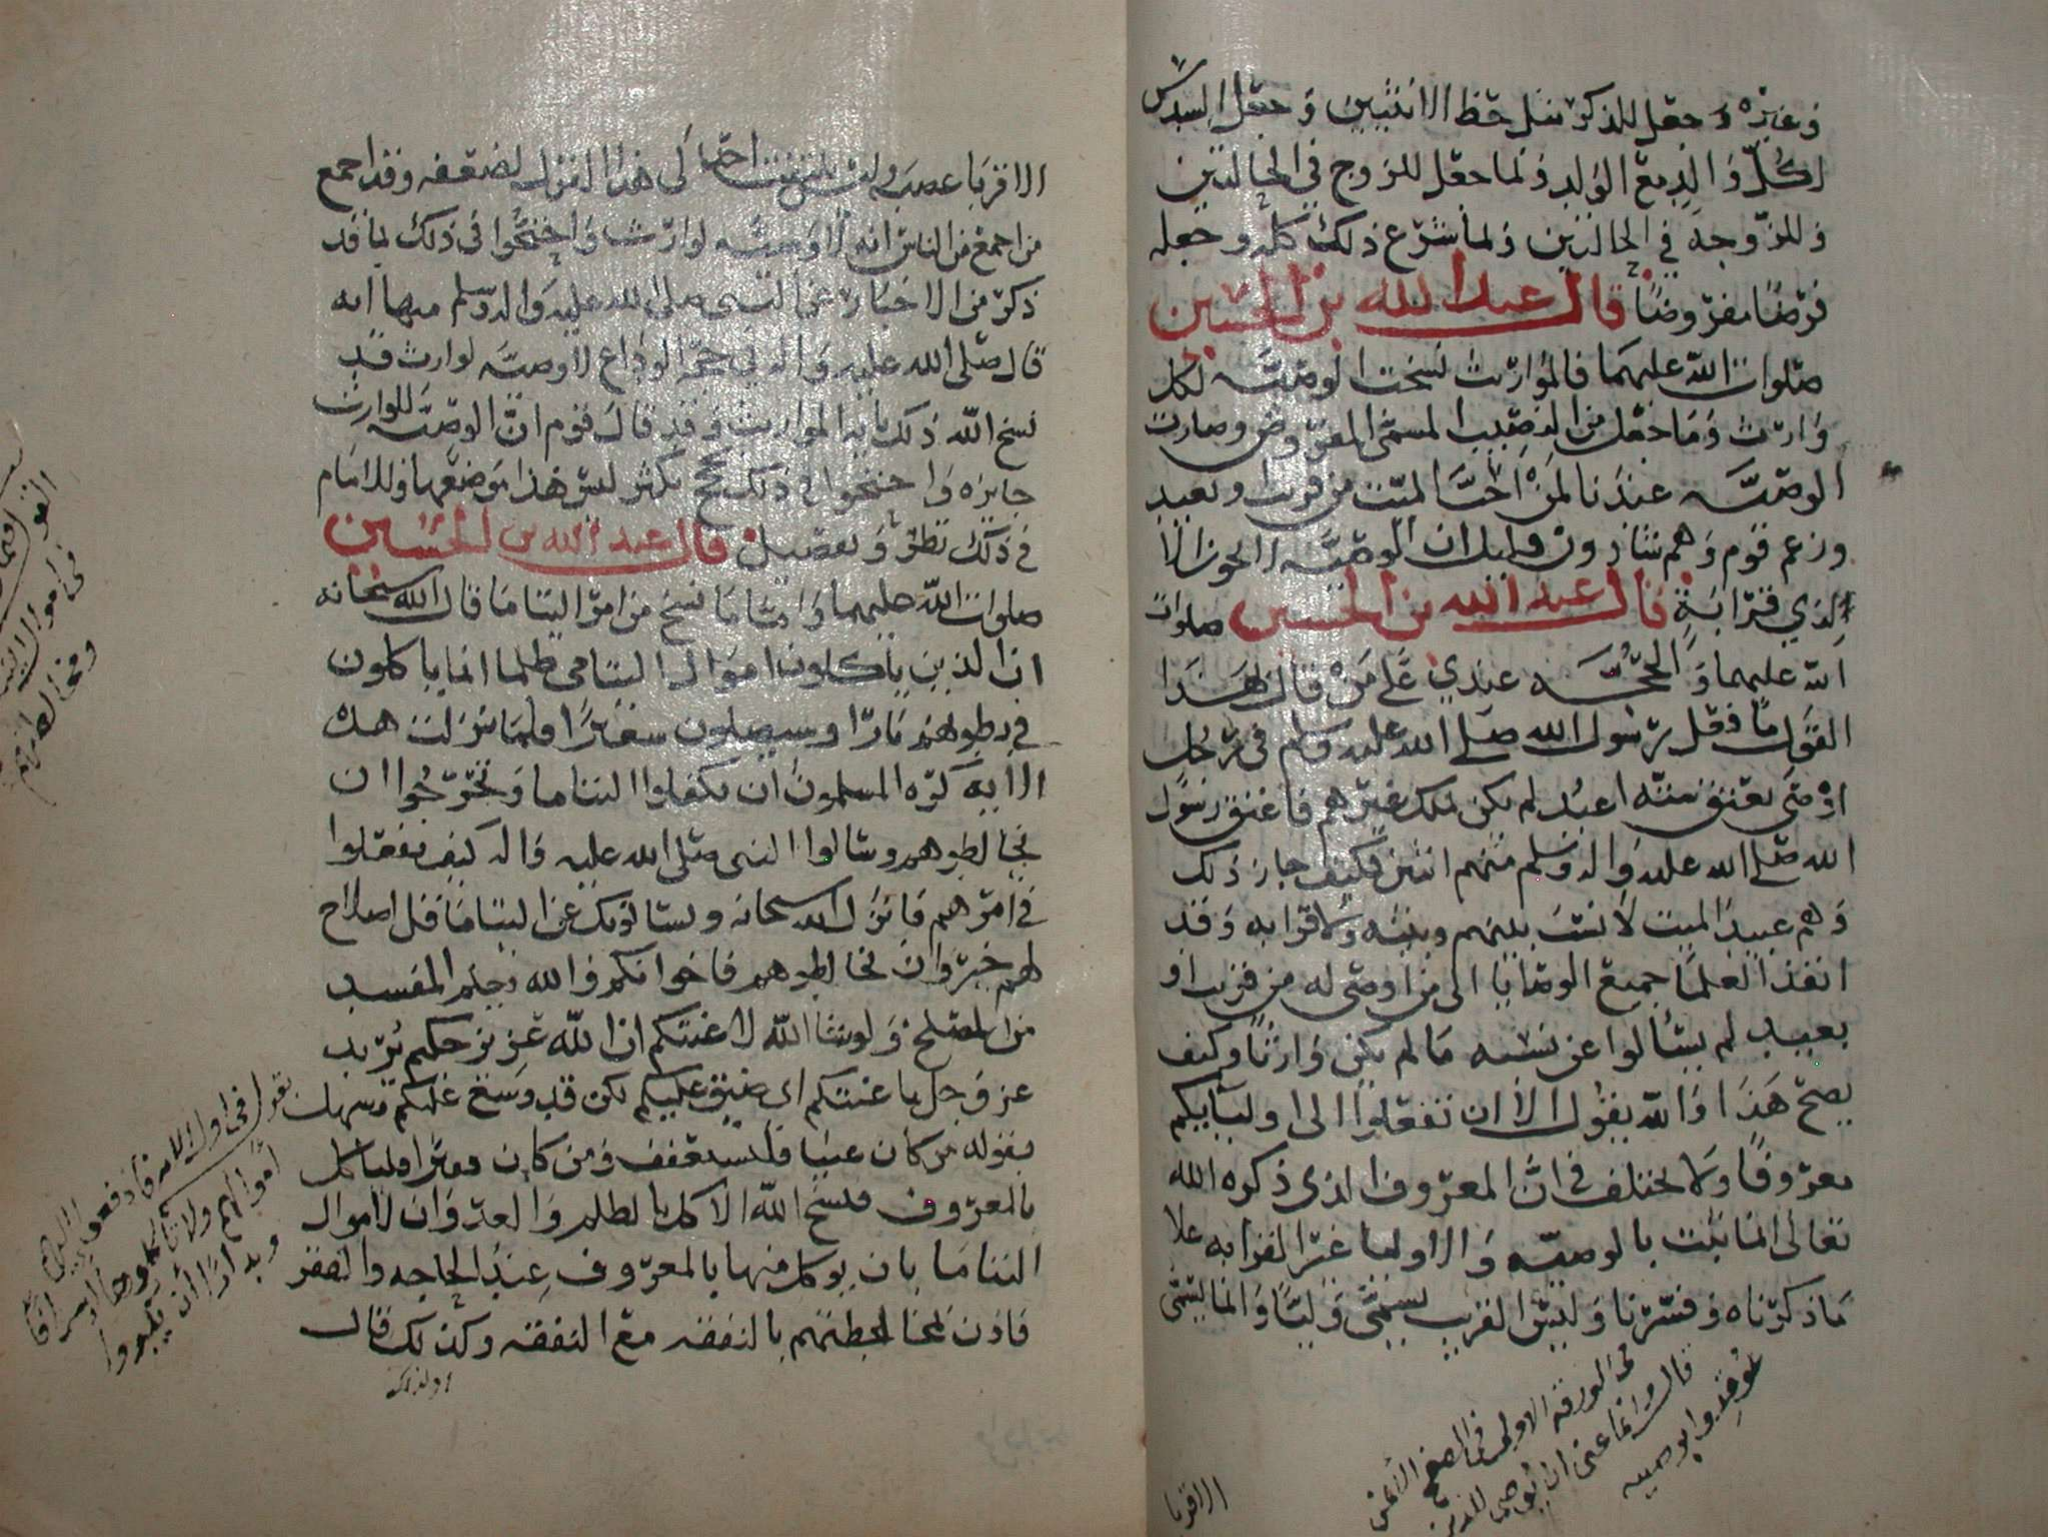 وغيره وجعل للذكر مثل حظ الانثيين وجعل السدس
لكل والد مع الولد ولما جعل للزوج في الحالتين
وللزوجه في الحالتين ولما شرع ذلك كله وجعله
فرضا مفروضا قال عبد الله بن الحسين
صلوات الله عليهما فالمواريث نسخت الوصيه لكل
وارث وما جعل من النصيب المسمى المفروض وصارت
الوصيه عندنا لمن احب الميت من قريب وبعيد
وزعم قوم وهم شاذون قليل ان الوصيه لا تجوز الا
لذي قرابة قال عبد الله بن الحسين صلوات
الله عليهما والحجه عندي على من قال بهذا
القول ما فعل رسول الله صلى الله عليه وسلم في رجل
اوصى بعتق سته اعبد لم يكن يملك غيرهم فاعتق رسول
الله صلى الله عليه واله وسلم منهم اثنين فكيف جاز ذلك
وهم عبيد الميت لا نسب بينهم وبينه ولا قرابه وقد
انفذ العلما جميع الوصايا الى من اوصى له من قريب او
بعيد لم يسألوا عن نسبه ما لم يكن وارثا وكيف
يصح هذا والله يقول الا ان تفعلوا الى اوليايكم
معروفا ولا يختلف في ان المعروف الذي ذكره الله
تعالى انما يثبت بالوصيه والاوليا غير القرابه علا
ما ذكرناه وفسرنا وليس القريب يسمى وليا وانما يسمى
في الورقه الاولى في الصفح الأيمن
قال وانما عنى ان يوصي للذين
عوقدوا بوصيه
الاقربا
الاقربا عصبه وليس يلتفت احد الى هذا القول لضعفه وقد اجمع
من اجمع من الناس انه لا وصيه لوارث واحتجوا في ذلك بما قد
ذكر من الاخبار عن النبي صلى الله عليه واله وسلم منها انه
قال صلى الله عليه واله في حجة الوداع لا وصيه لوارث قد
نسخ الله ذلك بايه المواريث وقد قال قوم ان الوصيه للوارث
جايزه واحتجوا في ذلك بحجج تكثر ليس هذا موضعها وللامام
في ذلك نظر وتفضيل قال عبد الله بن الحسين
صلوات الله عليهما واما ما نسخ من امر اليتاما قال الله سبحانه
ان الذين ياكلون اموال اليتامى ظلما انما ياكلون
في بطونهم نارا وسيصلون سعيرا فلما نزلت هذه
الايه كره المسلمون ان يكفلوا اليتاما وتحرجوا ان
يخالطوهم وسالوا النبي صلى الله عليه واله كيف يفعلوا
في امرهم فانزل الله سبحانه ويسالونك عن اليتاما قل اصلاح
لهم خير وان تخالطوهم فاخوانكم والله يعلم المفسد
من المصلح ولو شا الله لاعنتكم ان الله عزيز حكيم يريد
عز وجل باعنتكم اي ضيق عليكم لكن قد وسع عليكم وسهل
بقوله من كان غنيا فليستعفف ومن كان فقيرا فلياكل
بالمعروف فنسخ الله الاكل بالظلم والعدوان لاموال
اليتاما بان يوكل منها بالمعروف عند الحاجه والفقر
فاذن بمخالطتهم بالنفقه مع النفقه وكذلك قال
اموالهم ولا تاكلوها اسرافا
وبدارا أن يكبروا